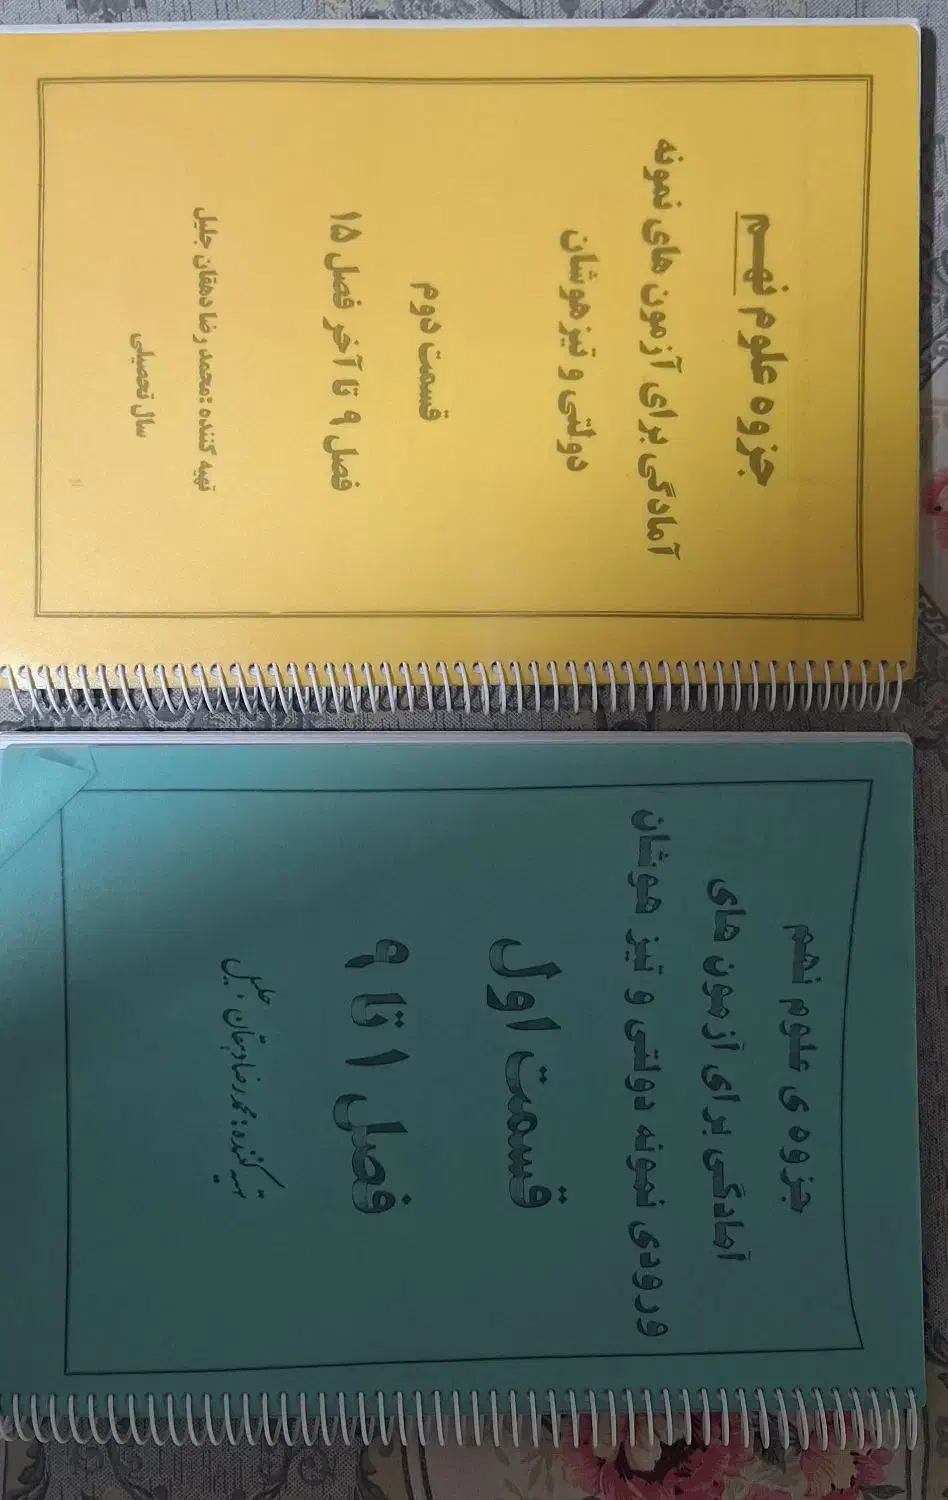 جزوه علوم نهم
آمادگی برای آزمون های نمونه
دولتی و تیزهوشان
قسمت دوم
فصل ۹ تا آخر فصل ۱۵
تهیه کننده :محمد رضا دهقان جلیل
سال تحصیلی
جزوه ی علوم نهم
آمادگی برای آزمون های
ورودی نمونه دولتی و تیز هوشان
قسمت اول
فصل ۱ تا ۹
تهیه کننده : محمدرضا دهقان جلیل